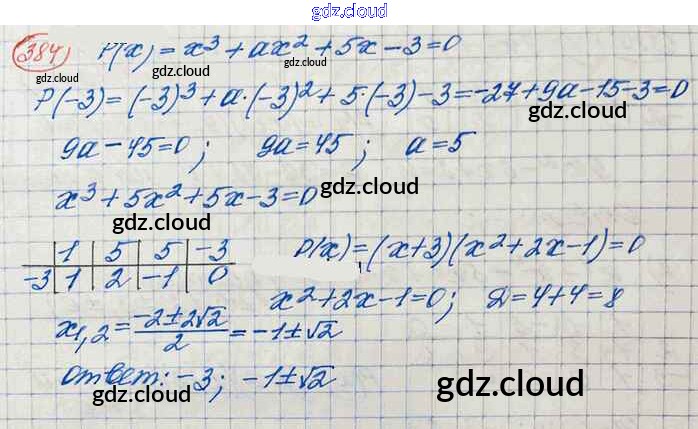 gdz.cloud
384) P(x) = x³ + ax² + 5x - 3 = 0
gdz.cloud gdz.cloud
P(-3) = (-3)³ + a·(-3)² + 5·(-3) - 3 = -27 + 9a - 15 - 3 = 0
gdz.cloud
9a - 45 = 0; 9a = 45; a = 5
gdz.cloud
x³ + 5x² + 5x - 3 = 0
gdz.cloud
1 5 5 -3
-3 1 2 -1 0
P(x) = (x+3)(x² + 2x - 1) = 0
gdz.cloud
x² + 2x - 1 = 0; D = 4 + 4 = 8
x₁,₂ = (-2 ± 2√2)/2 = -1 ± √2
gdz.cloud
Ответ: -3; -1 ± √2
gdz.cloud gdz.cloud